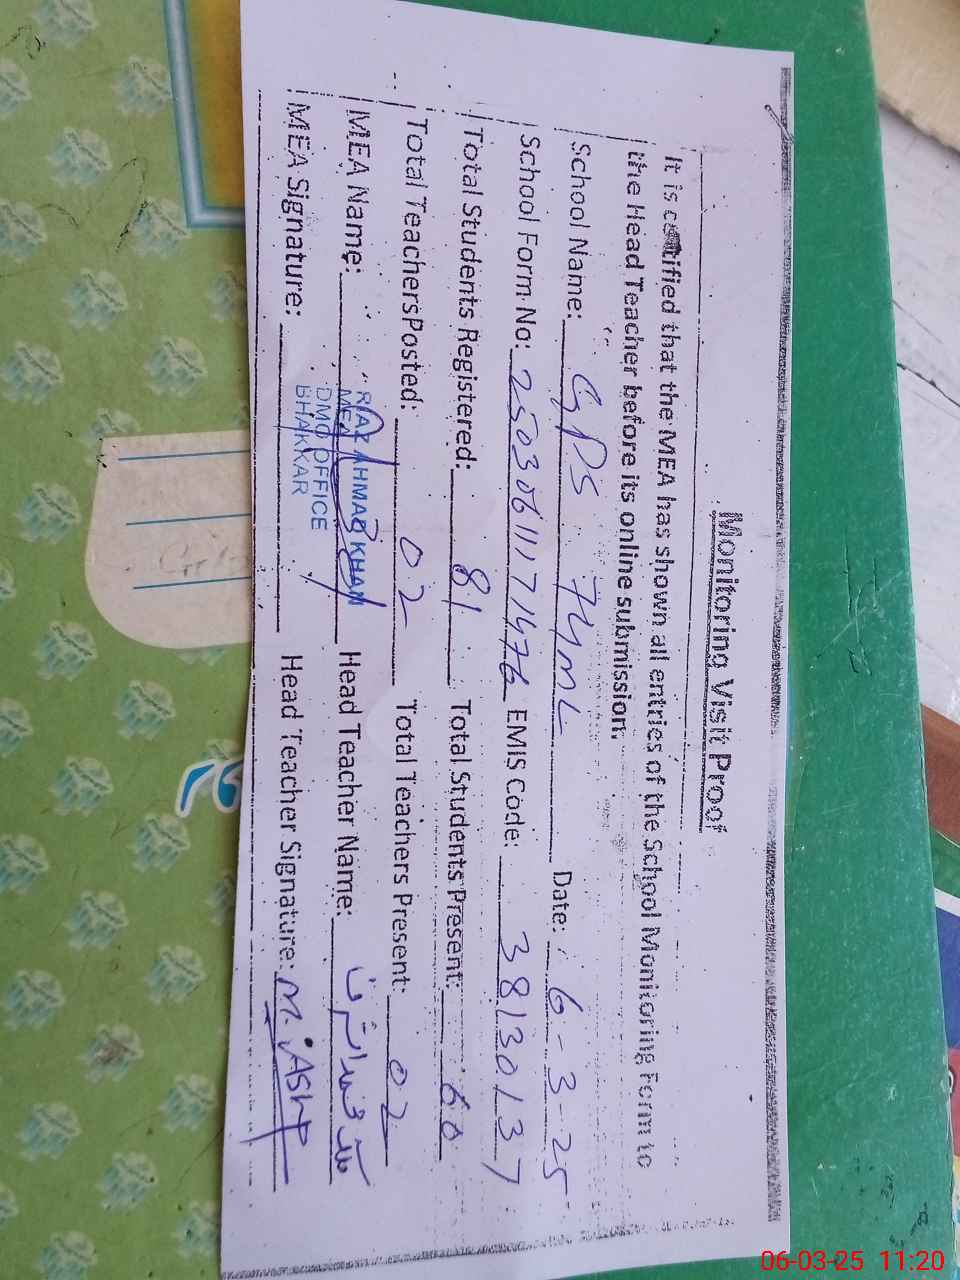 Monitoring Visit Proof
It is certified that the MEA has shown all entries of the School Monitoring Form to
the Head Teacher before its online submission.
School Name: GPS 74 ML Date: 6-3-25
School Form No: 25030611171476 EMIS Code: 38130137
Total Students Registered: 81 Total Students Present: 60
Total TeachersPosted: 02 Total Teachers Present: 02
MEA Name: RIAZ AHMAD KHAN Head Teacher Name: ملک محمد اشرف
MEA
DMO OFFICE
BHAKKAR
MEA Signature: Head Teacher Signature: M. ASHF
06-03-25 11:20